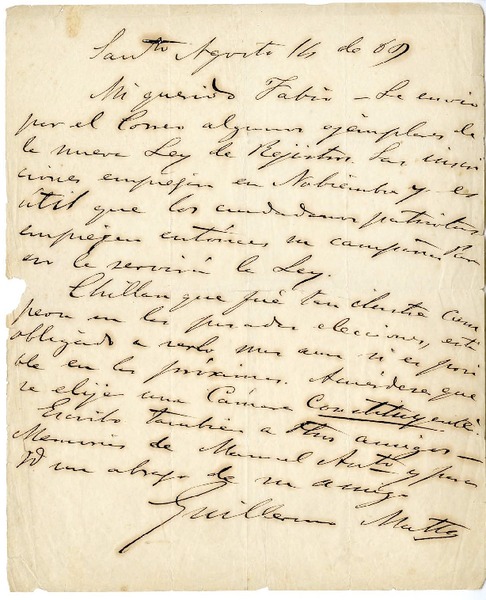 Sant⁰ Agosto 14 de 69
Mi querido Fabio – Le envio
por el Correo algunos ejemplares de
la nueva Ley de Rejistros. Las inscri
ciones empiezan en Nobiembre y es
útil que los ciudadanos patriotas
empiezen entónces su campaña. Para
en le servirá la Ley.
Chillan que fué tan ilustre cam
peon en las pasadas elecciones, está
obligado a serlo mas aun si es posi
ble en las próximas. Acuérdese que
se elije una Cámara Constituyente.
Escribo tambien a otros amigos –
Memorias de Manuel Anto y para
Vd un abrazo de su amigo
Guillermo Matta